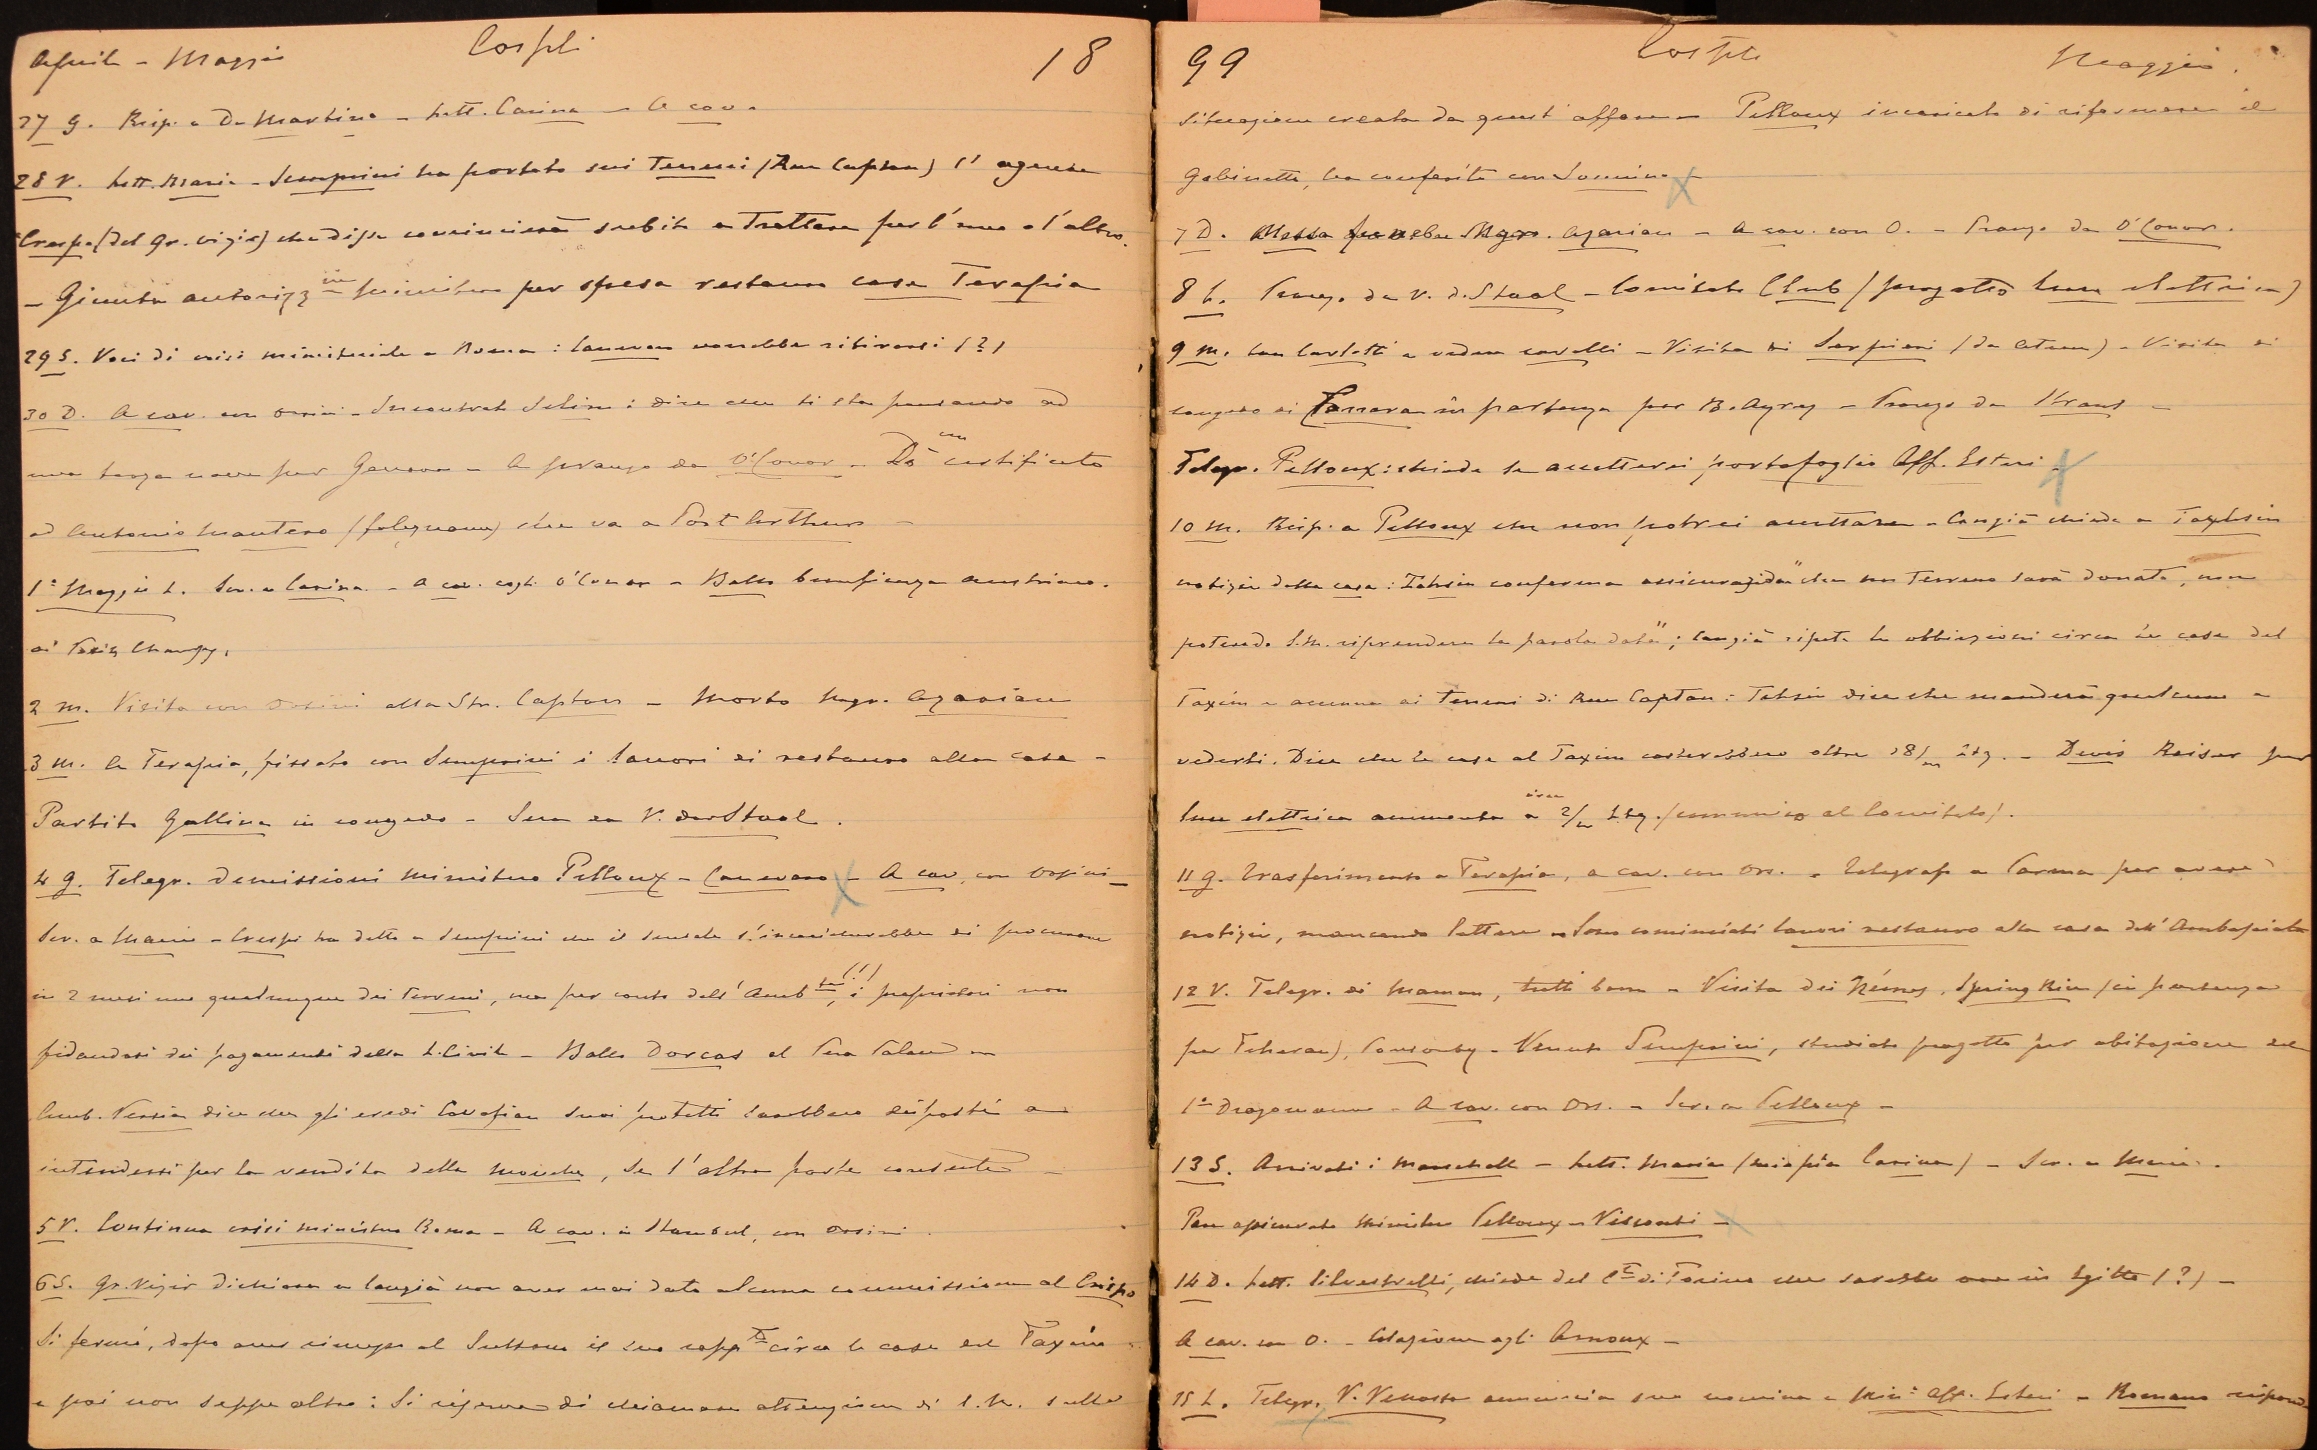 Aprile - Maggio Cospli 18
27 G. Risp. a De Martino - Lett. Carina - A cav.
28 V. Lett. Maria - Semprini ha portato sui Terreni (Rue Captan) l'agenzia
Crespi (del Gr. Vizir) che disse comincierà subito a Trattare per l'uno o l'altro.
- Giunta autorizz ministero per spesa restauro casa Terapia
29 S. Voci di crisi ministeriale a Roma: Canevaro vorrebbe ritirarsi (?)
30 D. A cav. con Orsini - Incontrato Selim: dice che si sta pensando ad
una terza nave per Genova - A pranzo da O'Conor - Dò un certificato
ad Antonio Mantero (falegname) che va a Port Arthur -
1° Maggio L. Scr. a Carina - A cav. cogli O'Conor - Ballo beneficenza austriaco.
ai Petits Champs.
2 M. Visita con Orsini alla Str. Captan - Morto Mgr. Azarian
3 M. A Terapia, fissato con Semprini i lavori di restauro alla casa -
Partito Gallina in congedo - Sera da V. der Staal.
4 G. Telegr. demissioni ministero Pelloux - Canevaro - A cav. con Orsini -
Scr. a Maria - Crespi ha detto a Semprini che il sensale s'incaricherebbe di procurare
in 2 mesi uno qualunque dei Terreni, ma per conto dell'Amb.ta (!), i proprietari non
fidandosi dei pagamenti della L. Civile - Ballo Dorcas al Pera Palace
Amb. Persia dice che gli eredi suoi protetti sarebbero disposti a
intendersi per la vendita della moschea, se l'altra parte consente -
5 V. Continua crisi ministero Roma - A cav. a Stambul, con Orsini.
6 S. Gr. Vizir dichiara a Cangià non aver mai dato alcuna commissione al Crespi
Si fermò, dopo aver rimesso al Sultano il suo rapp.to circa le case del Taxim
e poi non seppe altro: Si riserva di chiamare attenzione di S.M. sulla
99 Cospli Maggio.
situazione creata da quest'affare - Pelloux incaricato di riformare il
Gabinetto, ha conferito con Sonnino -
7 D. Messa funebre Mgr. Azarian - A cav. con O. - Pranzo da O'Conor.
8 L. Pranzo da V. d. Staal - Comitato Club (progetto luce elettrica)
9 M. Con Carlotti a vedere cavalli - Visita di Serpieri (da Atene) - Visita di
congedo di Ferrara in partenza per B. Ayres - Pranzo da Straus -
Telegr. Pelloux: chiede se accetterei portafoglio Aff. Esteri -
10 M. Risp. a Pelloux che non potrei accettare - Cangià chiede a Taxhsin
notizie delle case: Tahsin conferma assicurazioni "che un Terreno sarà donato, non
potendo S.M. riprendere la parola data"; Cangià ripete le obbiezioni circa le case del
Taxim e accenna ai terreni di Rue Captan: Tahsin dice che manderà qualcuno a
vederli. Dice che le case al Taxim costerebbero oltre 18/m Ltq. - Devis Reiser per
luce elettrica ammonta a circa 2/m Ltq. (comunico al Comitato).
11 G. Trasferimento a Terapia, a cav. con Ors. - Telegrafo a Parma per avere
notizie, mancando lettere - Sono cominciati lavori restauro alla casa dell'Ambasciata
12 V. Telegr. di Maman, tutti bene - Visita dei Spring Rice (in partenza
per Teheran), Ponsonby - Venuto Semprini, studiato progetto per abitazione del
1° Dragomanno - A cav. con Ors. - Scr. a Pelloux -
13 S. Arrivati i Marschall - Lett. Maria (miopia Carina) - Scr. a Maria.
Pare assicurato Ministero Pelloux - Visconti -
14 D. Lett. Silvestrelli, chiede del C.te di Torino che sarebbe ora in Egitto (?) -
A cav. con O. - Colazione agli Arnoux -
15 L. Telegr. V. Venosta annuncia sua nomina a Min° Aff. Esteri - Romano risponde